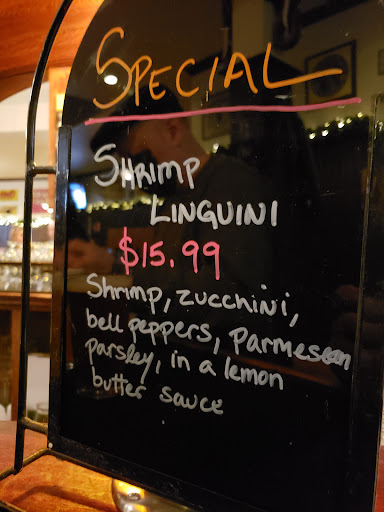 Special
Shrimp
Linguini
$15.99
Shrimp, zucchini,
bell peppers, Parmesean
parsley, in a lemon
butter sauce